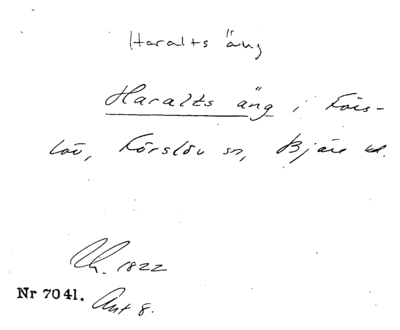 Haralts äng
Haralts äng, Förs-
löv, Förslöv sn, Bjäre hd.
Lh. 1822
Nr 7041. Akt 8.